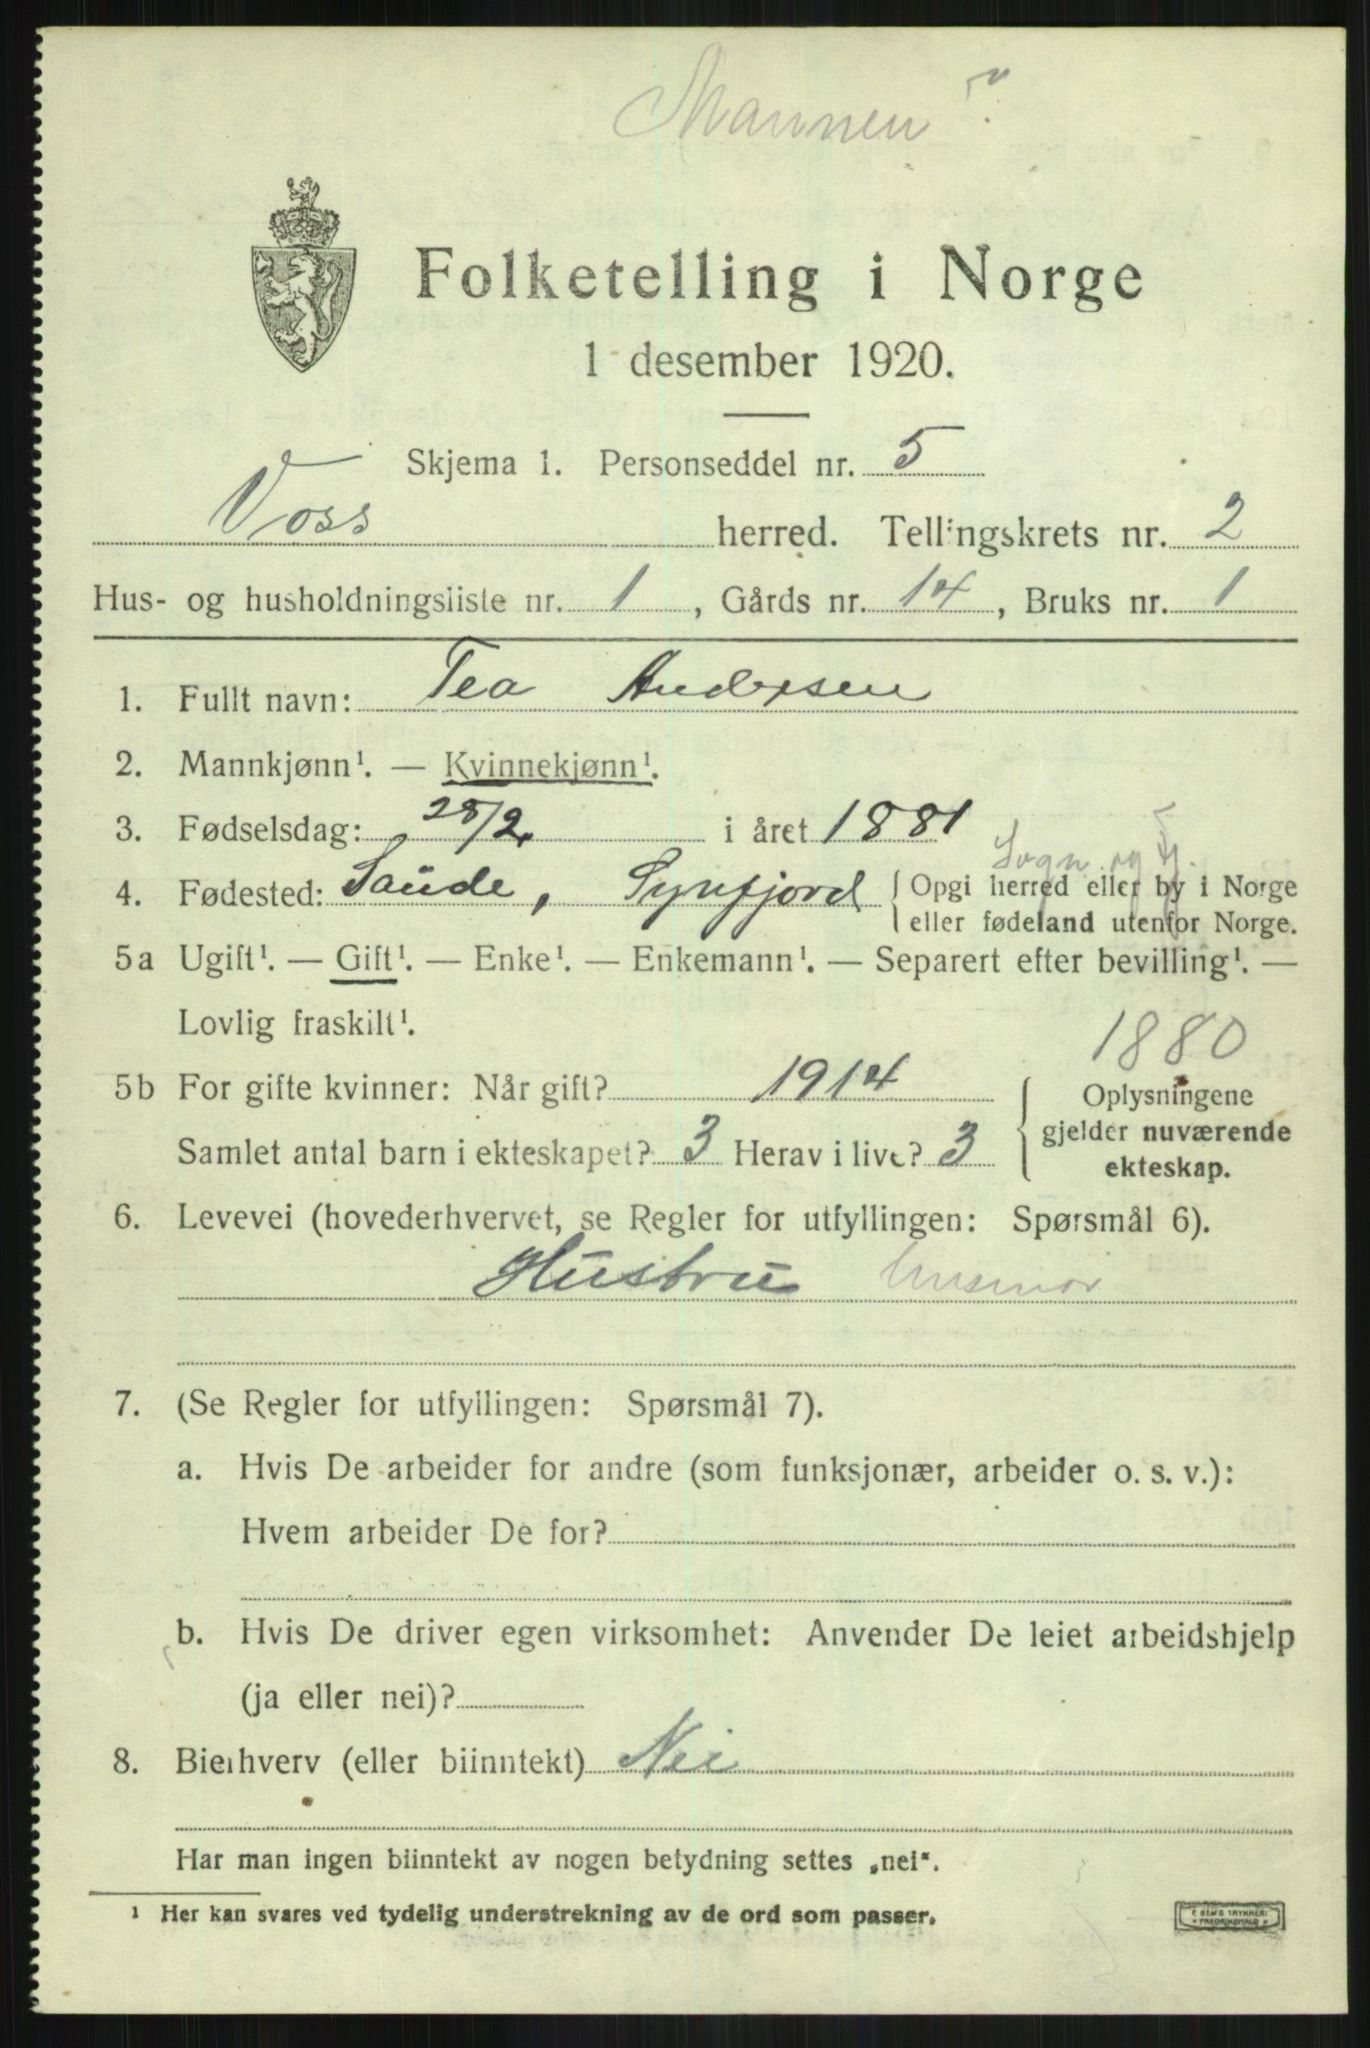 Mannen ?
Folketelling i Norge
1 desember 1920.
Skjema 1. Personseddel nr. 5
Voss herred. Tellingskrets nr. 2
Hus- og husholdningsliste nr. 1, Gårds nr. 14, Bruks nr. 1
1. Fullt navn: Tea Andersen
2. Mannkjønn¹. — Kvinnekjønn¹.
3. Fødselsdag: 28/2. i året 1881
Sogn og Fj.
4. Fødested: Saude, Synfjord { Opgi herred eller by i Norge
eller fødeland utenfor Norge.
5a Ugift¹. — Gift¹. — Enke¹. — Enkemann¹. — Separert efter bevilling¹. —
Lovlig fraskilt¹.
1880
5b For gifte kvinner: Når gift? 1914 { Oplysningene
gjelder nuværende
Samlet antal barn i ekteskapet? 3 Herav i live? 3
ekteskap.
6. Levevei (hovederhvervet, se Regler for utfyllingen: Spørsmål 6).
Hustru husmor
7. (Se Regler for utfyllingen: Spørsmål 7).
a. Hvis De arbeider for andre (som funksjonær, arbeider o. s. v.):
Hvem arbeider De for?
b. Hvis De driver egen virksomhet: Anvender De leiet arbeidshjelp
(ja eller nei)?
8. Bierhverv (eller biinntekt) Nei
Har man ingen biinntekt av nogen betydning settes „nei“.
¹ Her kan svares ved tydelig understrekning av de ord som passer.